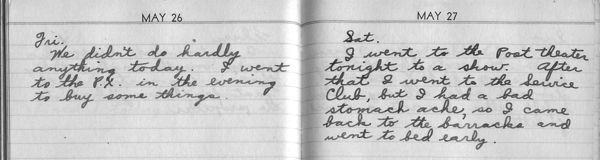 MAY 26
Fri.
We didn't do hardly
anything today. I went
to the P.X. in the evening
to buy some things.
MAY 27
Sat.
I went to the Post theater
tonight to a show. After
that I went to the Service
Club, but I had a bad
stomach ache, so I came
back to the barracks and
went to bed early.